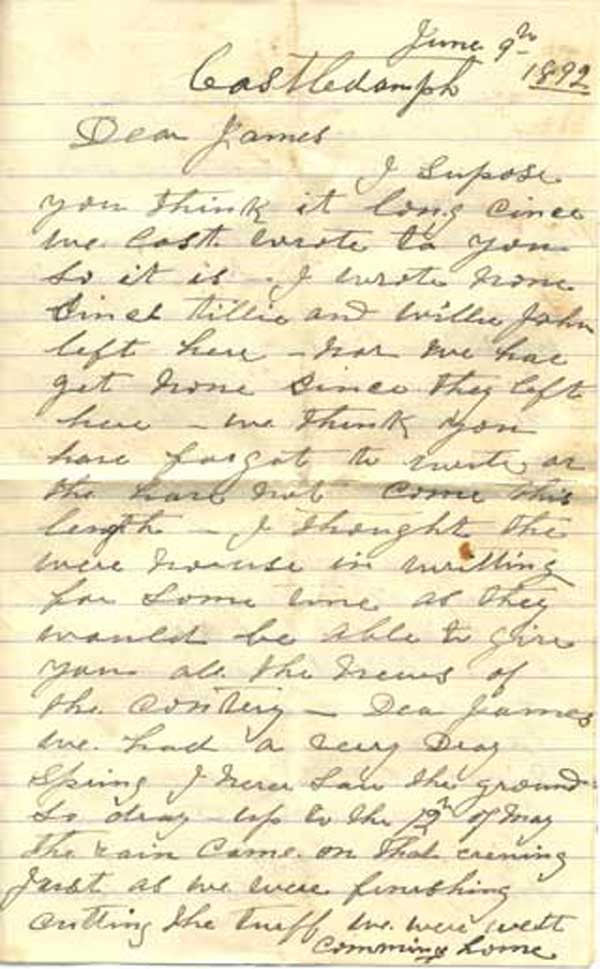 June 9th
Castledamph 1892
Dear James
I Supose
you think it long Cince
we Last wrote to you
So it is - I wrote none
Since Tillie and Willie John
left here - nor we hae
get none Since they left
here - we think you
have forgot to write or
the have not Come this
length - I thought the
were no use in writting
for Some time as they
would be able to give
you all the news of
the Contery - Dear James
we had a very Dray
Spring I never Saw the ground
So dray - up to the 12th of May
the rain Came on that evening
Just as we were finushing
cutting the turff we were wett
comming home